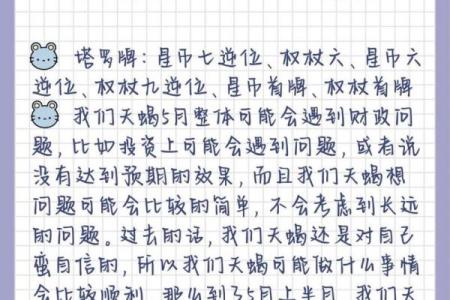 塔罗牌：星币七逆位、权杖六、星币六
逆位、权杖九逆位、星币首牌、权杖首牌
我们天蝎5月整体可能会遇到财政问
题，比如投资上可能会遇到问题，或者说
没有达到预期的效果，而且我们天蝎想
问题可能会比较的简单，不会考虑到长远
的问题。过去的话，我们天蝎还是对自己
蛮自信的，所以我们天蝎可能做什么事情
会比较顺利，那么到了5月上半月，我们天